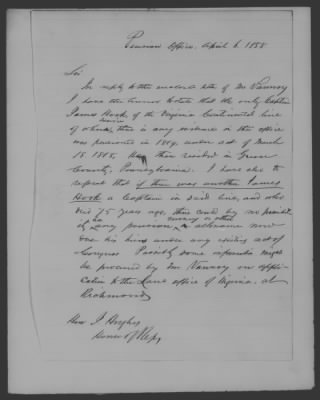 Pension Office, April 6, 1858
Sir
In reply to the enclosed note of Mr Vannoy
I have the honor to state that the only Captain
James Hook, of the Virginia Continental line
of whose service there is any evidence in this office
was pensioned in 1819, under act of March
18, 1818, then resided in Green
County, Pennsylvania. I have also to
report that if there was another James
Hook a Captain in said line, and who
died 75 years ago, there could by no possi
any pension or allowance now
due his heirs under any existing act of
Congress Possibly some information might
be procured by Mr Vannoy on appli
cation to the Land office of Virginia, at
Richmond
Hon J Hughes
House of Reps